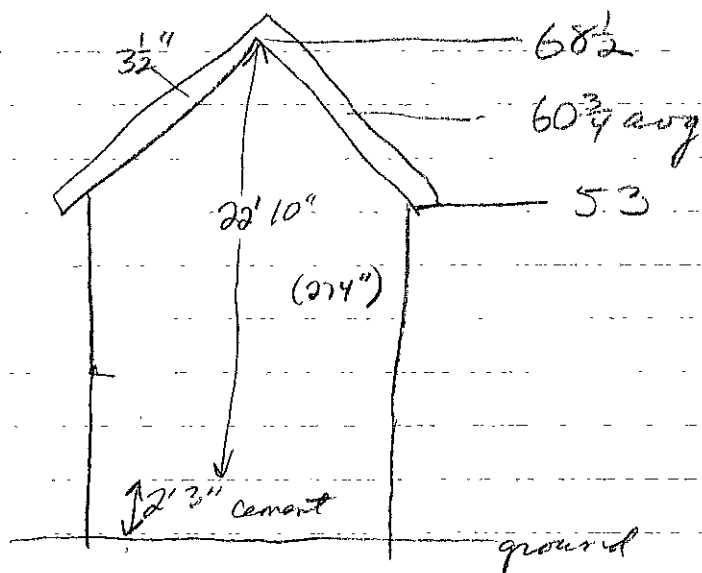 3½"
68½
60¾ avg
53
22' 10"
(274")
2' 3" cement
ground